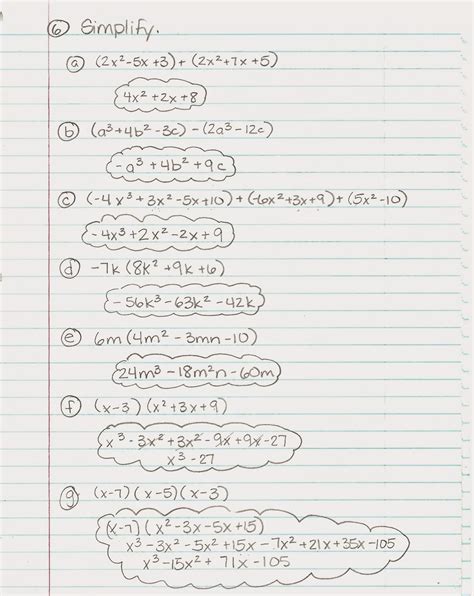 ⑥ Simplify.
ⓐ (2x²-5x+3)+(2x²+7x+5)
4x²+2x+8
ⓑ (a³+4b²-3c)-(2a³-12c)
-a³+4b²+9c
ⓒ (-4x³+3x²-5x+10)+(-6x²+3x+9)+(5x²-10)
-4x³+2x²-2x+9
ⓓ -7k(8k²+9k+6)
-56k³-63k²-42k
ⓔ 6m(4m²-3mn-10)
24m³-18m²n-60m
ⓕ (x-3)(x²+3x+9)
x³-3x²+3x²-9x+9x-27
x³-27
ⓖ (x-7)(x-5)(x-3)
(x-7)(x²-3x-5x+15)
x³-3x²-5x²+15x-7x²+21x+35x-105
x³-15x²+71x-105